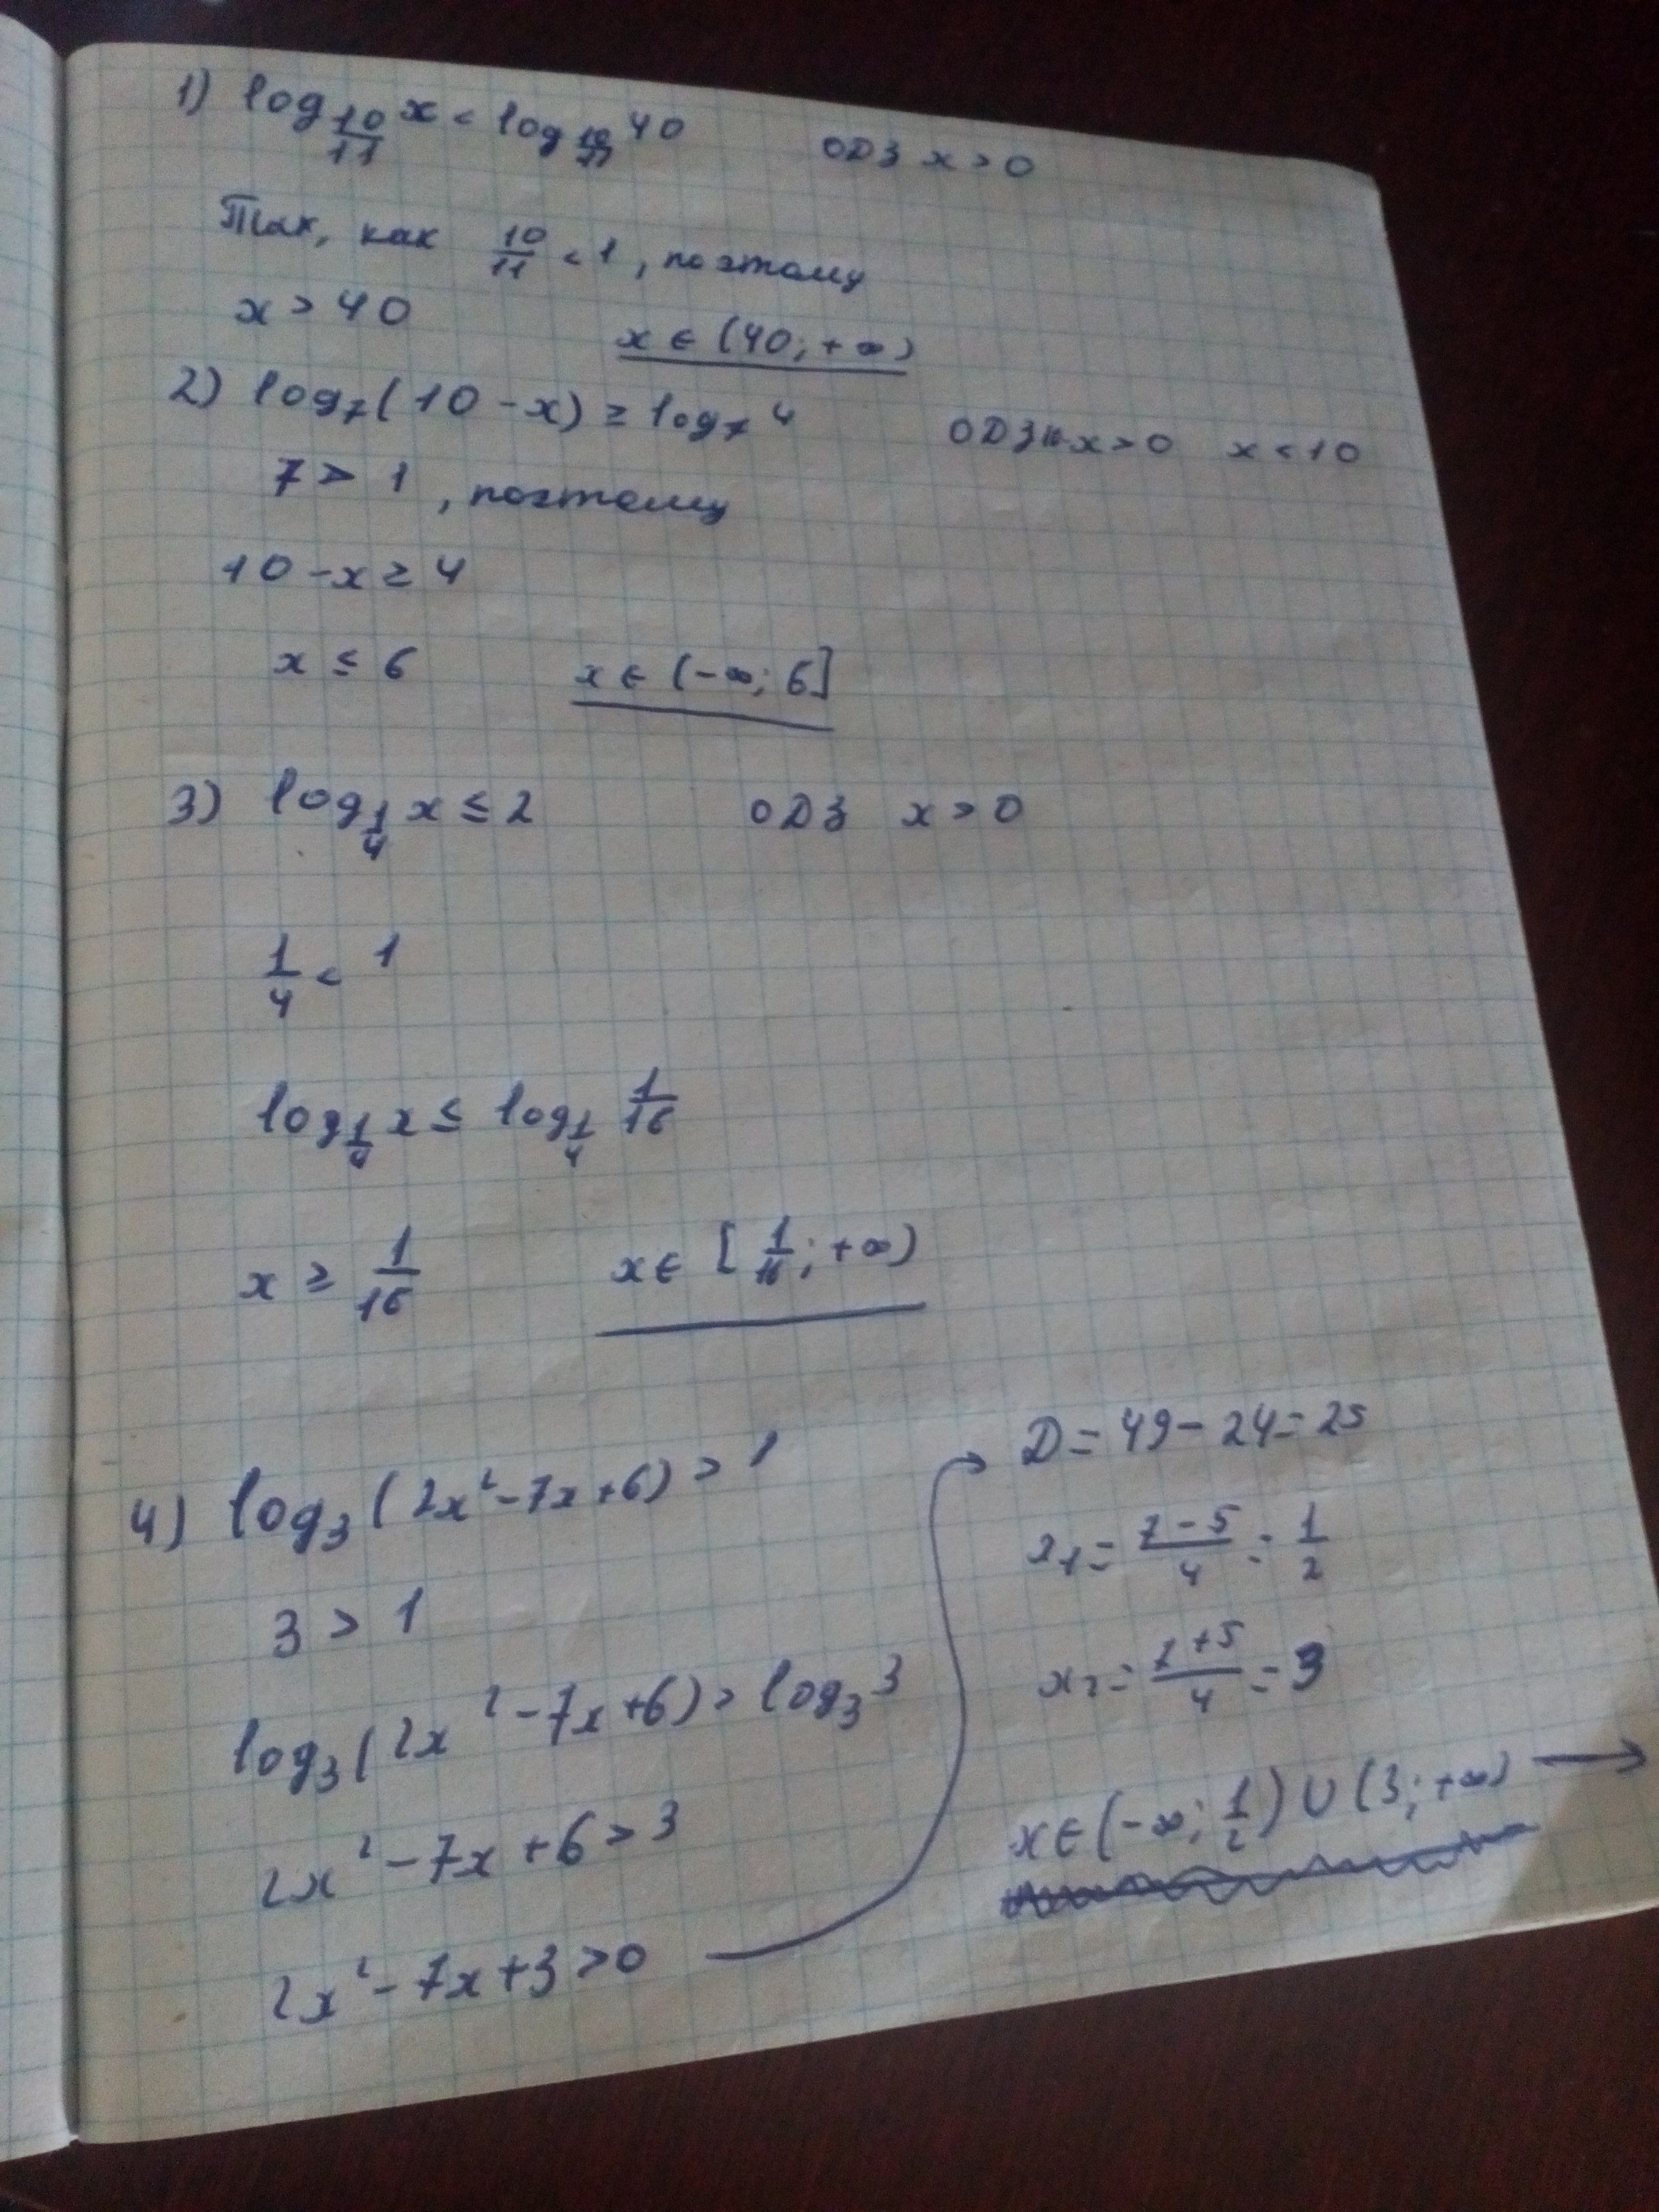 1) log_{10/11} x < log_{10/11} 40 ОДЗ x > 0
Так, как 10/11 < 1, поэтому
x > 40 x ∈ (40; +∞)
2) log_7 (10 - x) ≥ log_7 4 ОДЗ 10-x > 0 x < 10
7 > 1, поэтому
10 - x ≥ 4
x ≤ 6 x ∈ (-∞; 6]
3) log_{1/4} x ≤ 2 ОДЗ x > 0
1/4 < 1
log_{1/4} x ≤ log_{1/4} 1/16
x ≥ 1/16 x ∈ [1/16; +∞)
4) log_3 (2x² - 7x + 6) > 1
3 > 1
log_3 (2x² - 7x + 6) > log_3 3
2x² - 7x + 6 > 3
2x² - 7x + 3 > 0 →
D = 49 - 24 = 25
x_1 = (7 - 5)/4 = 1/2
x_2 = (7 + 5)/4 = 3
x ∈ (-∞; 1/2) ∪ (3; +∞) →